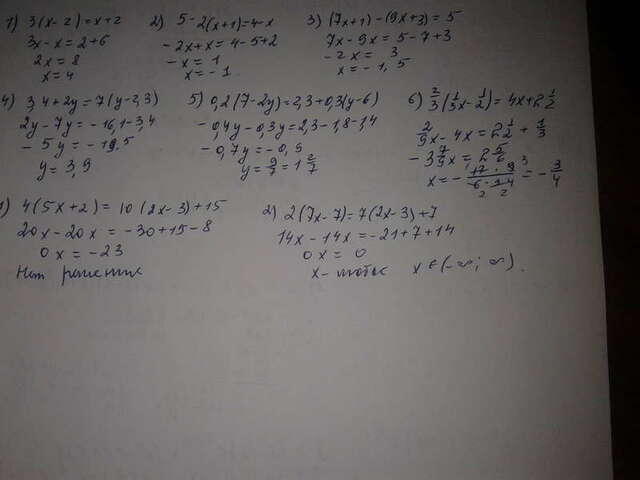 1) 3(x-2)=x+2
3x-x=2+6
2x=8
x=4
2) 5-2(x+1)=4-x
-2x+x=4-5+2
-x=1
x=-1
3) (7x+1)-(9x+3)=5
7x-9x=5-7+3
-2x=3
x=-1,5
4) 3,4+2y=7(y-2,3)
2y-7y=-16,1-3,4
-5y=-19,5
y=3,9
5) 0,2(7-2y)=2,3+0,3(y-6)
-0,4y-0,3y=2,3-1,8-1,4
-0,7y=-0,9
y=9/7=1 2/7
6) 2/3(1/3x-1/2)=4x+2 1/2
2/9x-4x=2 1/2+1/3
-3 7/9x=2 5/6
x=-17·9/6·34=-3/4
1) 4(5x+2)=10(2x-3)+15
20x-20x=-30+15-8
0x=-23
Нет решения
2) 2(7x-7)=7(2x-3)+7
14x-14x=-21+7+14
0x=0
x-любое x∈(-∞;∞).